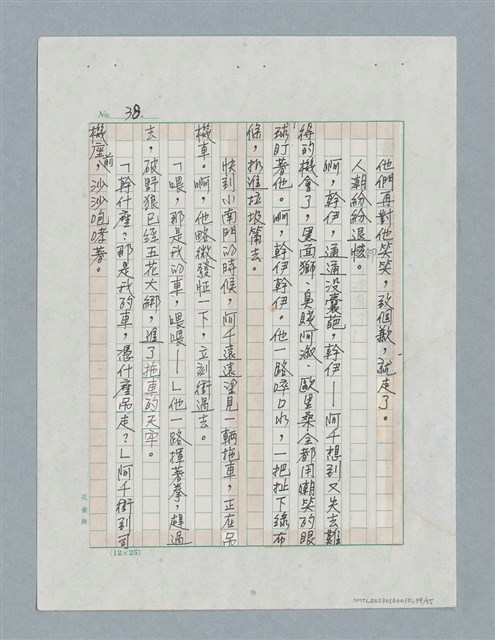 No. 38.
他們再對他笑笑，致個歉，就走了。
人朝紛紛退卻。
啊，幹伊，通通沒囊葩，幹伊——阿千想到又失去難
得的機會了，黑面獅、臭賤阿淑、歐里桑全都用嘲笑的眼
球盯著他。啊，幹伊幹伊。他一路啐口水，一把扯下綠布
條，扔進垃圾筒去。
快到小南門的時候，阿千遠遠望見一輛拖車，正在吊
機車。啊，他略微發怔一下，立刻衝過去。
「喂，那是我的車，喂喂——」他一路揮著拳，趕過
去，破野狼已經五花大綁，進了拖車的天牢。
「幹什麼？那是我的車，憑什麼吊走？」阿千衝到司
機座前，沙沙咆哮著。
孔雀牌
(12×25)